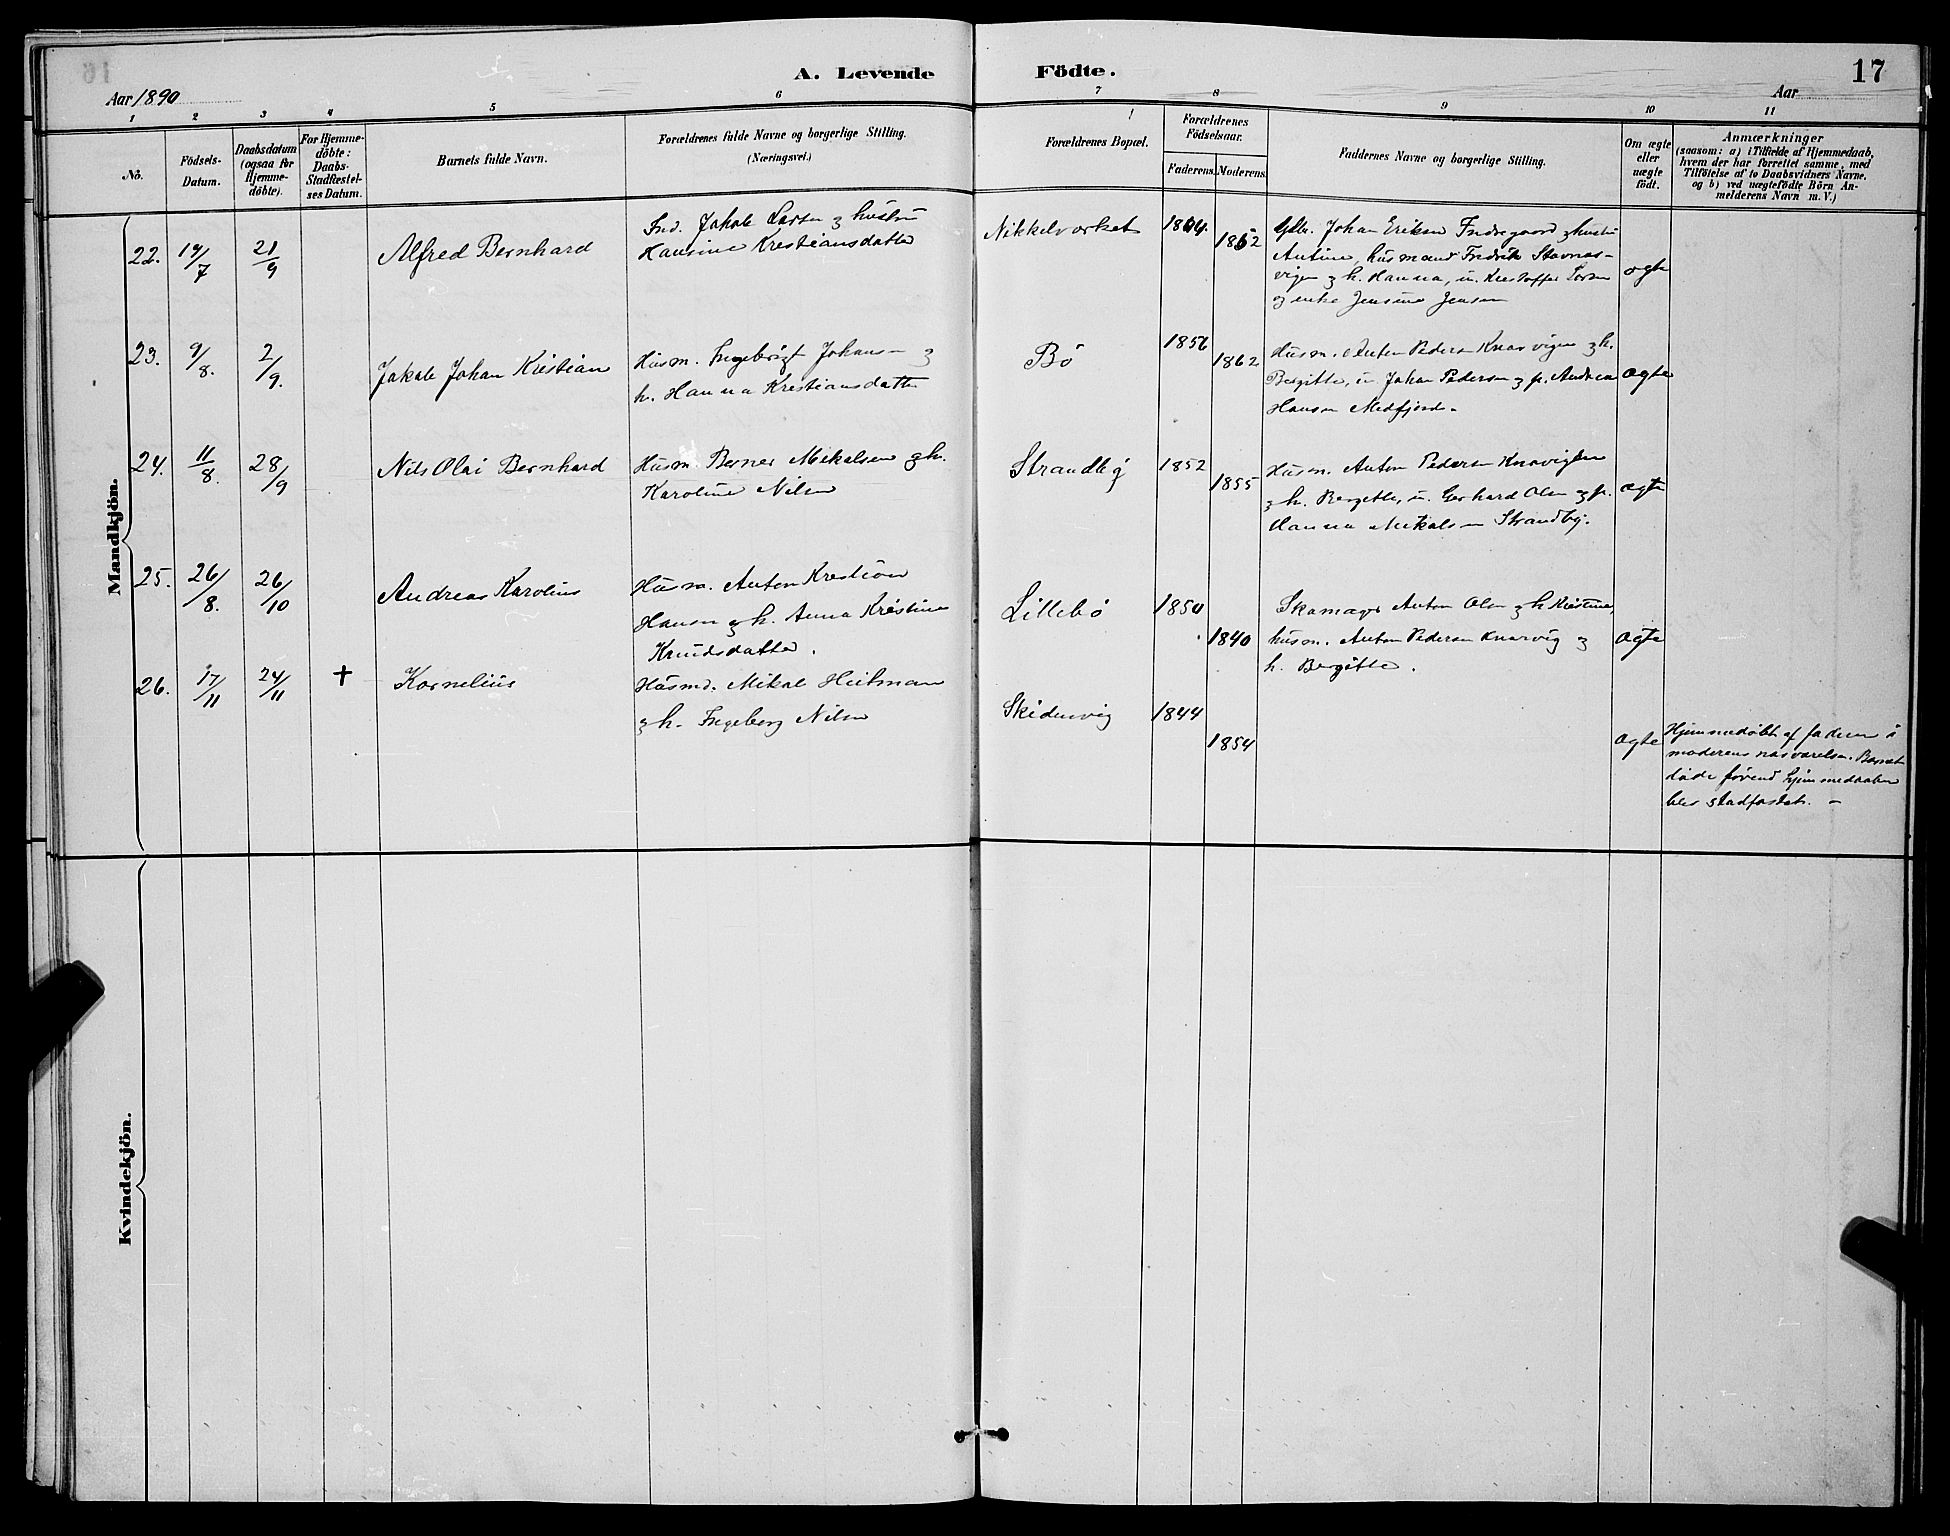 A. Levende Födte.
17
Aar 1890
Aar
1 2 3 4 5 6 7 8 9 10 11
No.
Födsels-
Datum.
Daabsdatum
(ogsaa for
Hjemme-
döbte).
For Hjemme-
döbte:
Daabs-
Stadfæstel-
ses Datum.
Barnets fulde Navn.
Forældrenes fulde Navne og borgerlige Stilling.
(Næringsvei.)
Forældrenes Bopæl.
Forældrenes
Födselsaar.
Faderens.
Moderens.
Faddernes Navne og borgerlige Stilling.
Om ægte
eller
uægte
födt.
Anmærkninger
(saasom: a) i Tilfælde af Hjemmedaab,
hvem der har forrettet samme, med
Tilföielse af to Daabsvidners Navne,
og b) ved uægtefödte Börn An-
melderens Navn m. V.)
Mandkjön.
22. 14/7 21/9
Alfred Bernhard
Ind. Jakob Larsen og hustru
Hansine Kristiansdatter
Nikkelværket
1864.
1862
Johan Eriksen Indregaard og hustru
Antine, husmand Fredrik Stavnes-
vigen og h. Hanna, u. Kristoffer Larsen
og enke Jensine Jensen
ægte
23. 9/8. 2/9.
Jakob Johan Kristian
Husm. Ingebrigt Johans- og
h. Hanna Kristiansdatter
Bö
1856
1862
Husm. Anton Pedersen Knarvigen og h.
Bergitte, u. Johan Pedersen og p. Andrea
Hansen Medfjord-
ægte
24. 11/8. 28/9
Nils Olai Bernhard
Husm. Berner Mikalsen og h.
Karoline Nilsen
Strandby
1852
1855
Husm. Anton Pedersen Knarvigen
og h. Bergitte, u. Gerhard Olsen og p.
Hanna Mikalsen Strandby.
ægte
25. 26/8. 26/10
Andreas Karolius
Husm. Anton Kristian
Hansen og h. Anna Kristine
Knudsdatter.
Lillebö
1850
1840
Skomager Anton Olsen og h. Kristine,
husm. Anton Pedersen Knarvig og
h. Bergitte.
ægte
26. 17/11 24/11 +
Kornelius
Husmd. Mikal Heitman
og h. Ingeborg Nilsen
Skidenvig
1844
1854
ægte
Hjemmedöbt af faderen i
moderens nærværelse. Barnet
döde förend hjemmedaaben
blev stadfæstet. -
Kvindekjön.